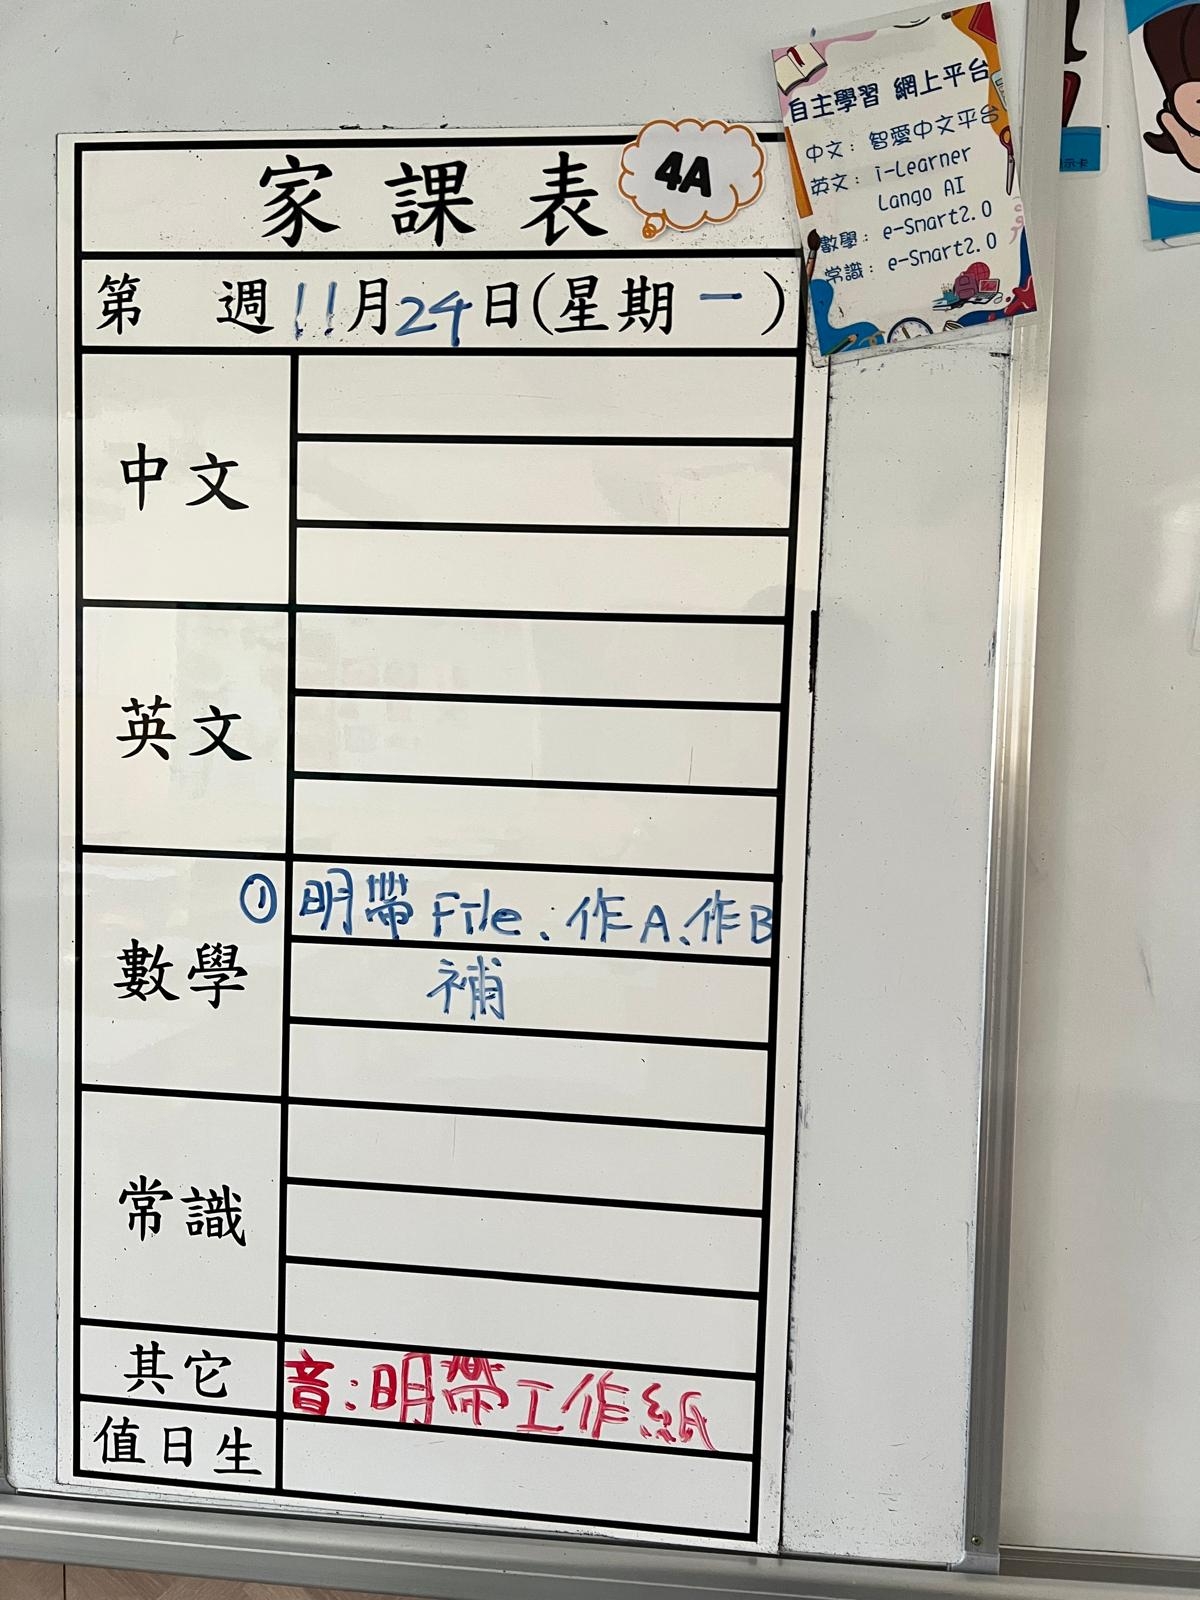 家課表
4A
第 週 11月24日(星期一)
中文
英文
數學
① 明帶File、作A、作B
補
常識
其它
音:明帶工作紙
值日生
自主學習 網上平台
中文: 智愛中文平台
英文: i-Learner
Lango AI
數學: e-Smart2.0
常識: e-Smart2.0
示卡